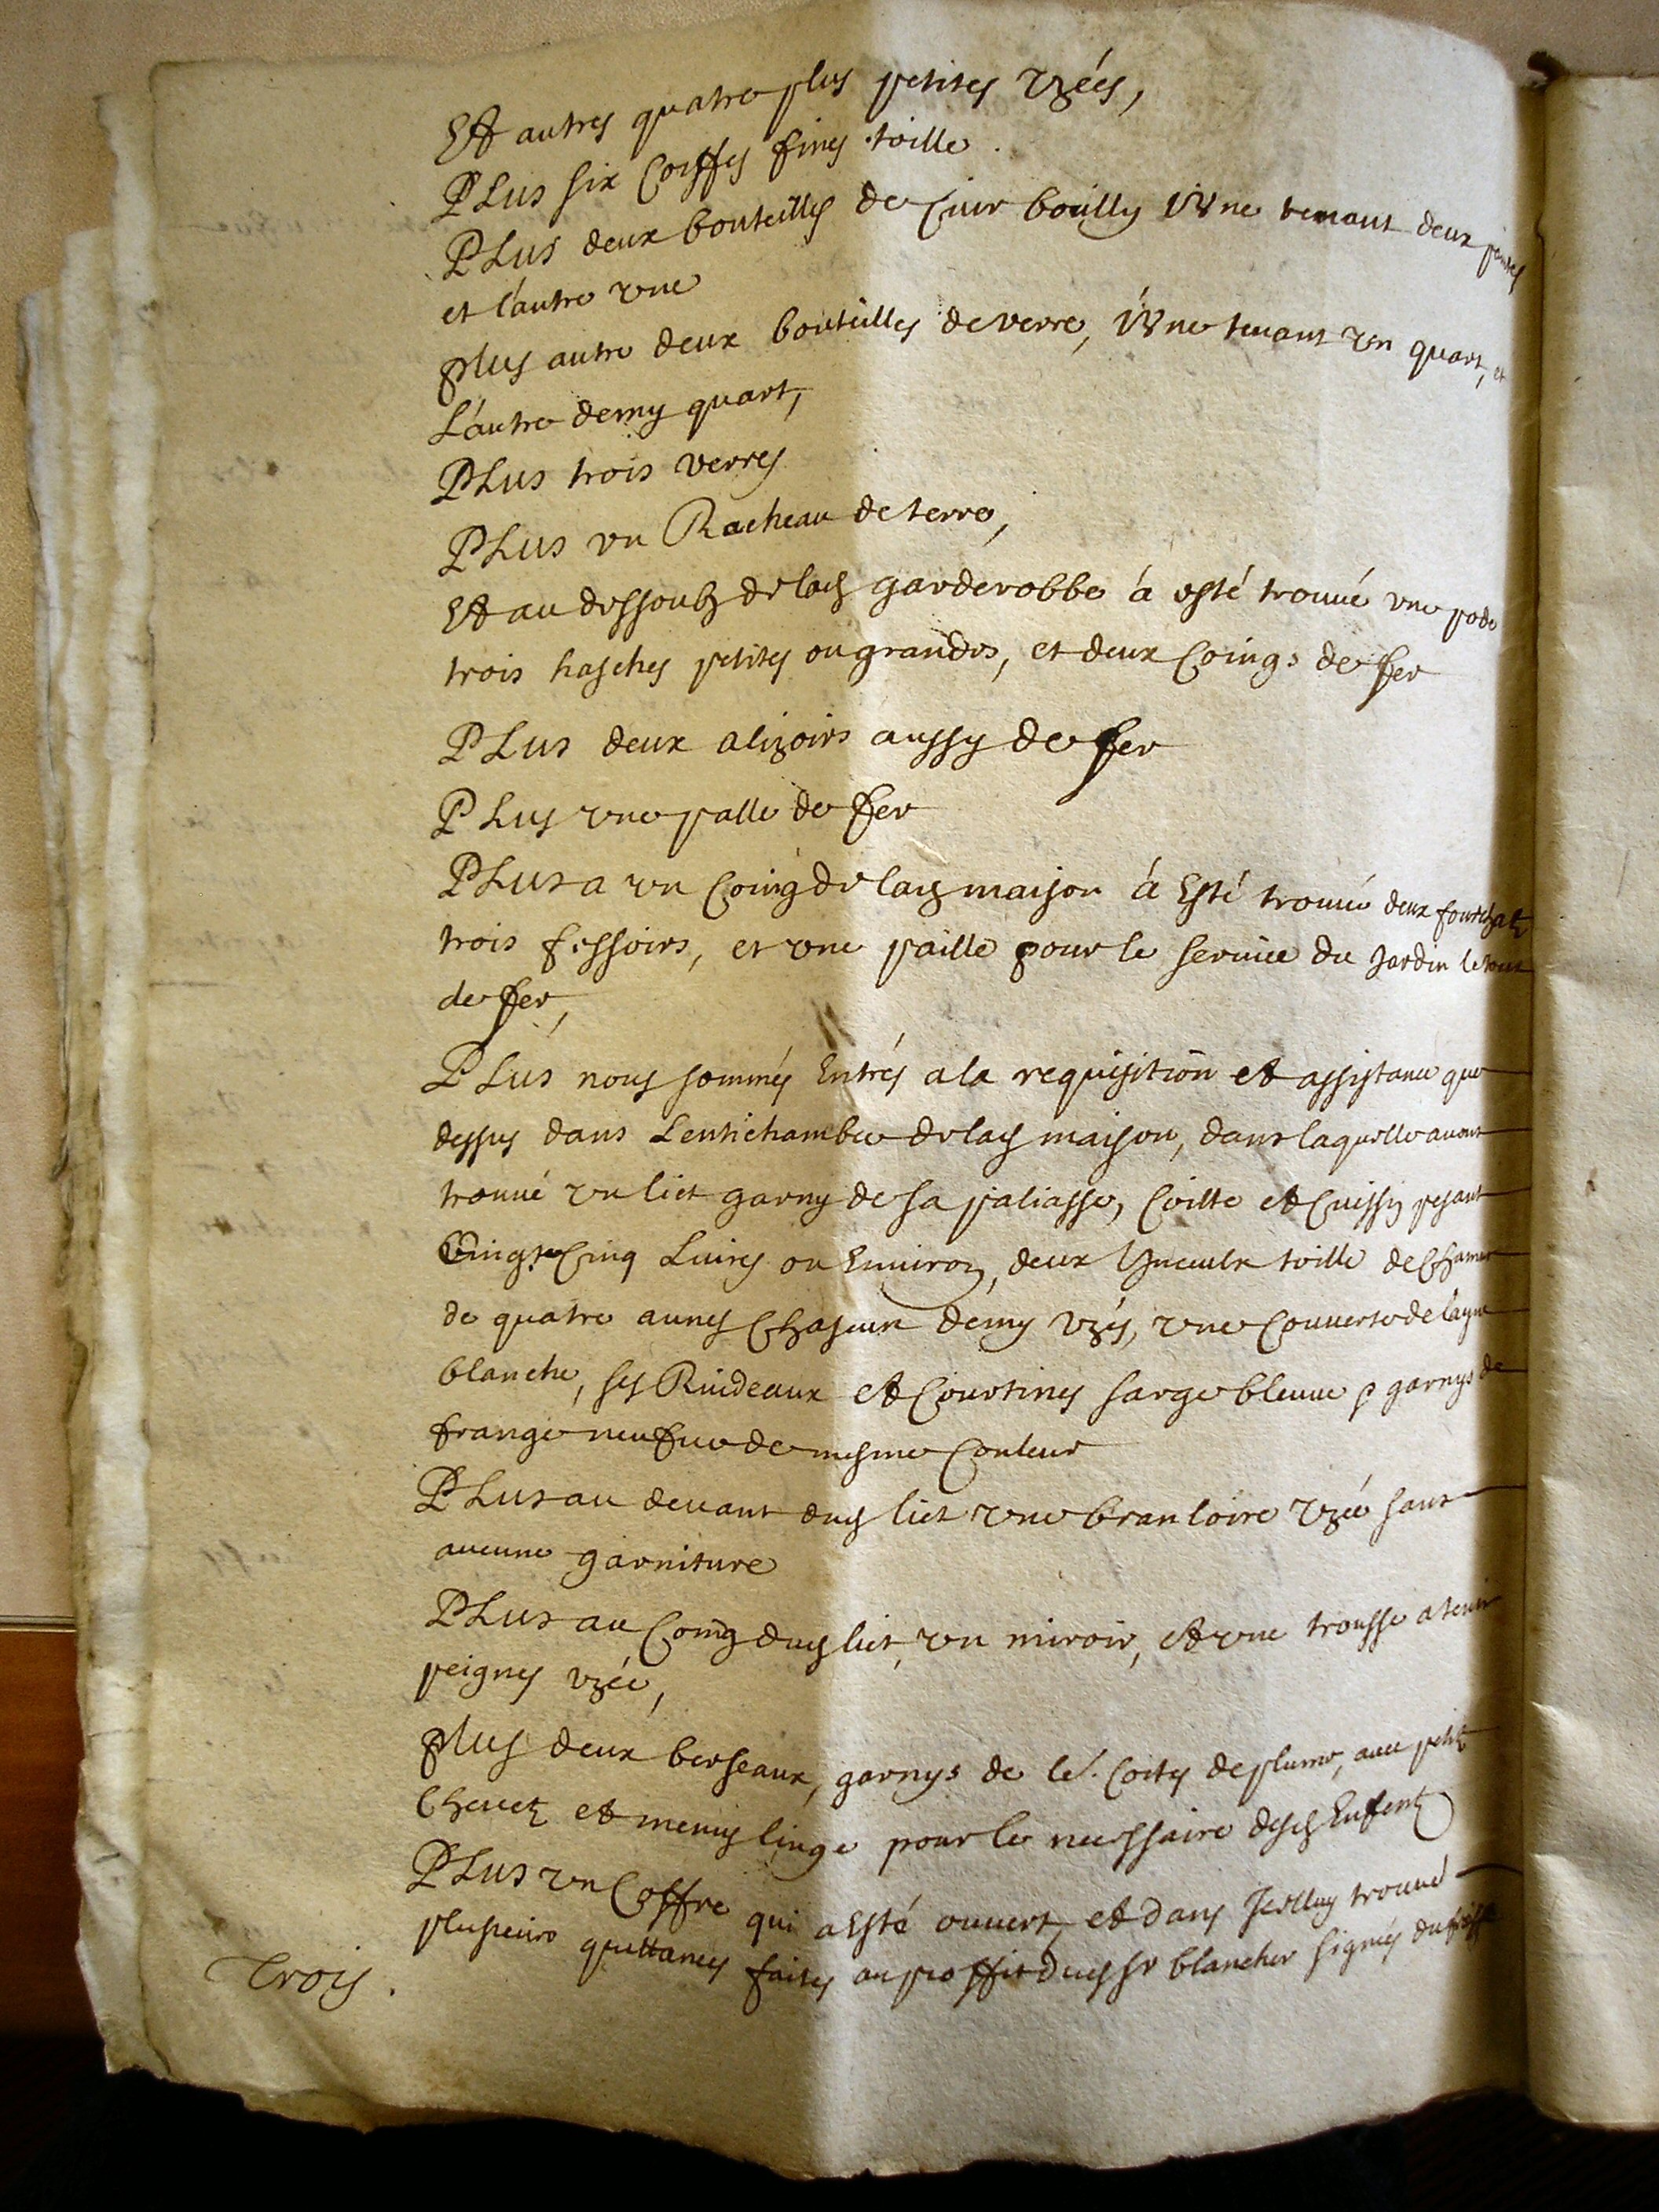 Et autres quatre plus petites uzées,
PLus six Coiffes fines toille.
PLus deux bouteilles de Cuir boully l'une tenant deux pintes
et l'autre une
plus autre deux bouteilles de verre, l'une tenant un quart, et
L'autre demy quart,
PLus trois verres
PLus un Racheau de terre,
Et au dessoubz de lad garderobbe à esté trouué une pode
trois hasches petites ou grandes, et deux Coings de fer
PLus deux alizoirs aussy de fer
PLus une palle de fer
PLus a un Coing de lad maison à Esté trouué deux fourchatz
trois fessoirs, et une paille pour le seruice du Jardin le tout
de fer,
PLus nous sommes Entrés a la requisition et assistance que
dessus dans Lentichambre de lad maison, dans laquelle auons
trouué un lict garny de sa paliasse, Coitte et Cuissin pesant
Vingt Cinq Liures ou Enuiron, deux linceulx toille de Chanure
de quatre aunes Chascun demy uzés, une Couuerte de layne
blanche, ses Rideaux et Courtines sarge bleuue garnys de
frange neufue de mesme Couleur
PLus au deuant dud lict une branloire uzée sans
aucune garniture
PLus au Coing dud lict, un miroir, et une trousse a tenir
peignes uzée,
plus deux berseaux, garnys de Coites de plume, auec petitz
Cheuetz et menus linge pour le necessaire desd Enfentz
PLus un Coffre qui a Esté ouuert, et dans Jcelluy trouué
plusieurs quittances faites au proffit dud sr blancher signées
Trois.